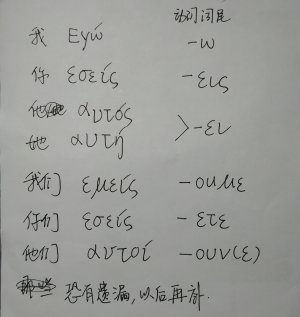 动词词尾
我 Εγώ -ω
你 εσείς -εις
他 αυτός
她 αυτή >-ει
我们 εμείς -ουμε
你们 εσείς -ετε
他们 αυτοί -ουν(ε)
恐有遗漏,以后再补.